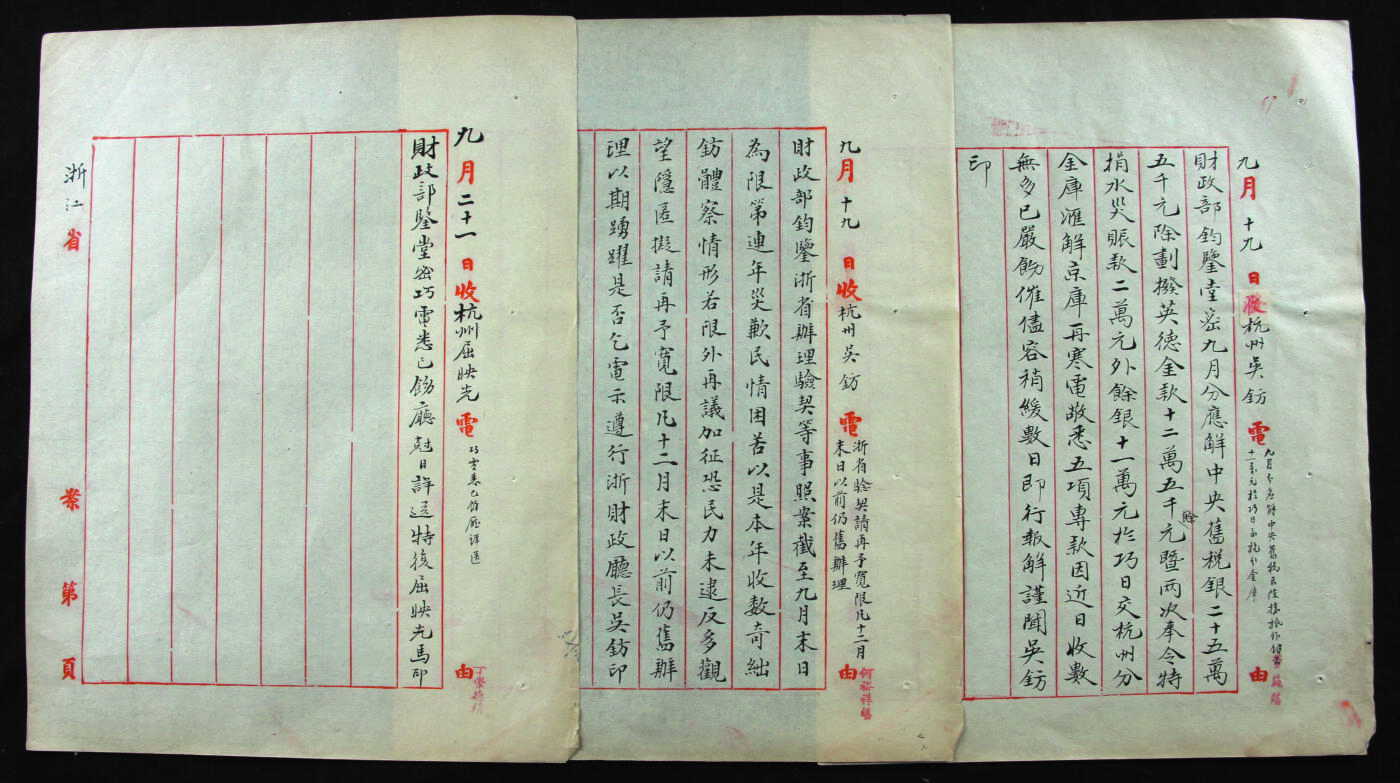 九月十九日收杭州吳鈁電
九月分應解中央舊稅
十一萬元於巧日交杭州分金庫
由
財政部鈞鑒堂密九月分應解中央舊稅銀二十五萬
五千元除劃撥英德金款十二萬五千元暨兩次奉令特
餘
捐水災賑款二萬元外餘銀十一萬元於巧日交杭州分
金庫滙解京庫再寒電敬悉五項專款因近日收數
無多已嚴飭催儘容稍緩數日即行報解謹聞吳鈁
印
九月十九日收杭州吳鈁電
浙省驗契請再予寬限凡十二月
末日以前仍舊辦理
由
何裕祥繕
財政部鈞鑒浙省辦理驗契等事照案截至九月末日
為限第連年災歉民情困苦以是本年收數奇絀
鈁體察情形若限外再議加征恐民力未逮反多觀
望隱匿擬請再予寬限凡十二月末日以前仍舊辦
理以期踴躍是否乞電示遵行浙財政廳長吳鈁印
九月二十一日收杭州屈映光電
巧電悉已飭廳詳送
由
財政部鑒堂密巧電悉已飭廳尅日詳送特復屈映光馬印
浙江省 案第 頁